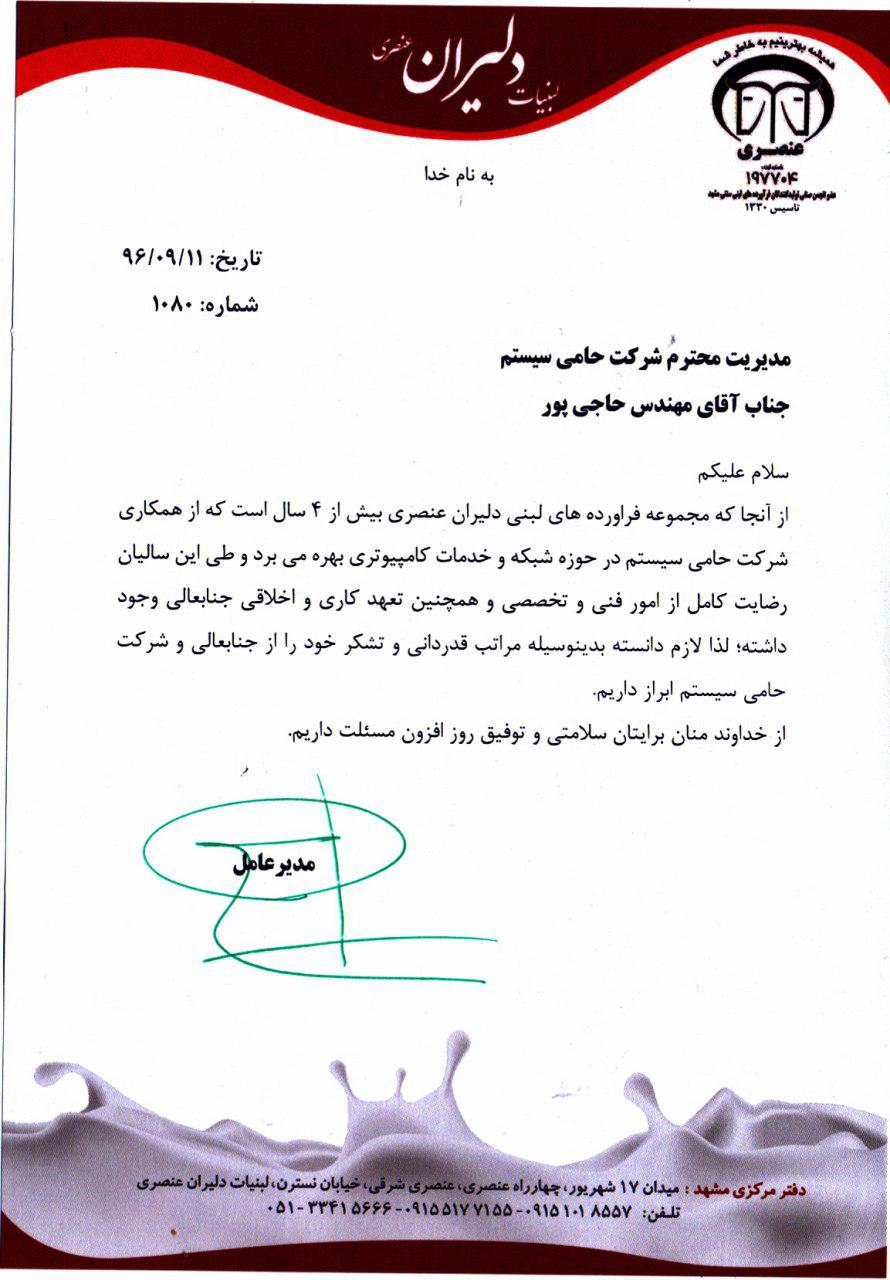 همیشه بهترینیم به خاطر شما
لبنیات دلیران عنصری
عنصری
۱۹۷۷۰۴
عضو انجمن صنفی تولیدکنندگان فرآورده های لبنی سنتی مشهد
تاسیس ۱۳۳۰
به نام خدا
تاریخ: ۹۶/۰۹/۱۱
شماره: ۱۰۸۰
مدیریت محترم شرکت حامی سیستم
جناب آقای مهندس حاجی پور
سلام علیکم
از آنجا که مجموعه فراورده های لبنی دلیران عنصری بیش از ۴ سال است که از همکاری
شرکت حامی سیستم در حوزه شبکه و خدمات کامپیوتری بهره می برد و طی این سالیان
رضایت کامل از امور فنی و تخصصی و همچنین تعهد کاری و اخلاقی جنابعالی وجود
داشته؛ لذا لازم دانسته بدینوسیله مراتب قدردانی و تشکر خود را از جنابعالی و شرکت
حامی سیستم ابراز داریم.
از خداوند منان برایتان سلامتی و توفیق روز افزون مسئلت داریم.
مدیرعامل
دفتر مرکزی مشهد : میدان ۱۷ شهریور، چهارراه عنصری، عنصری شرقی، خیابان نسترن، لبنیات دلیران عنصری
تلفن: ۰۹۱۵ ۱۰۱ ۸۵۵۷ - ۰۹۱۵ ۵۱۷ ۷۱۵۵ - ۰۵۱-۳۳۴۱ ۵۶۶۶